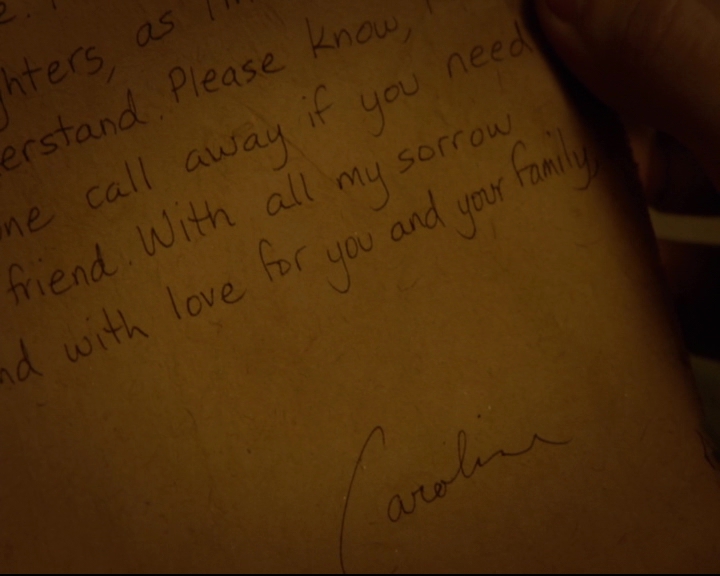 e.
ghters, as
erstand. Please know,
ne call away if you need
friend. With all my sorrow
nd with love for you and your family,
Caroline